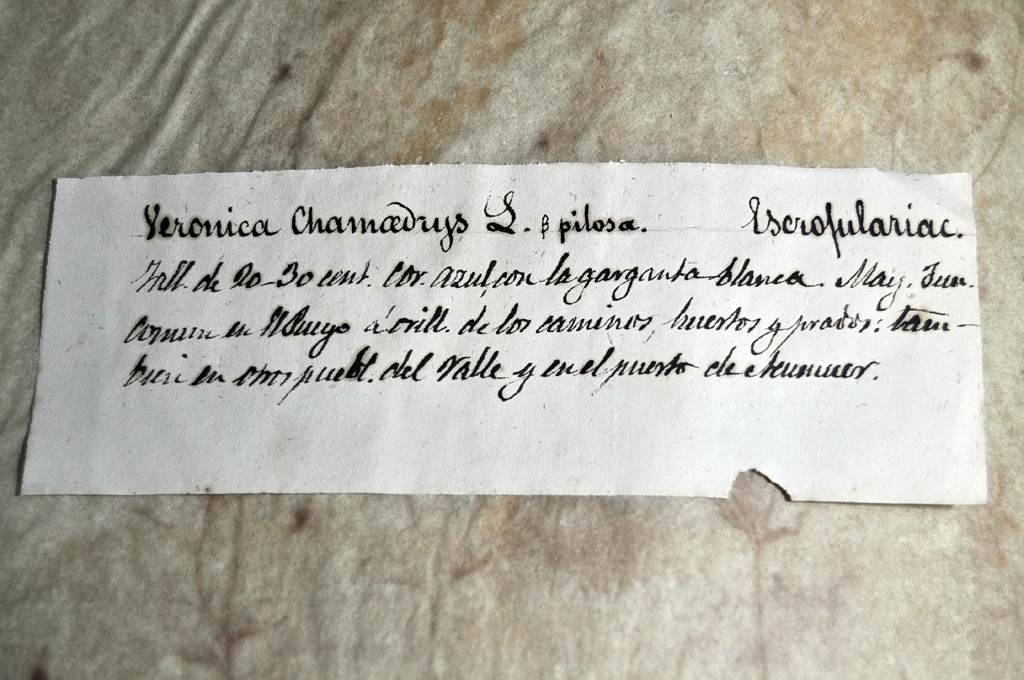 Veronica Chamædrys L. β pilosa. Escrofulariac.
Tall. de 20-30 cent. Cor. azul, con la garganta blanca. May. Jun.
Comun en El Pueyo á orill. de los caminos, huertos y prados: tam-
bien en otros puebl. del Valle y en el puerto de